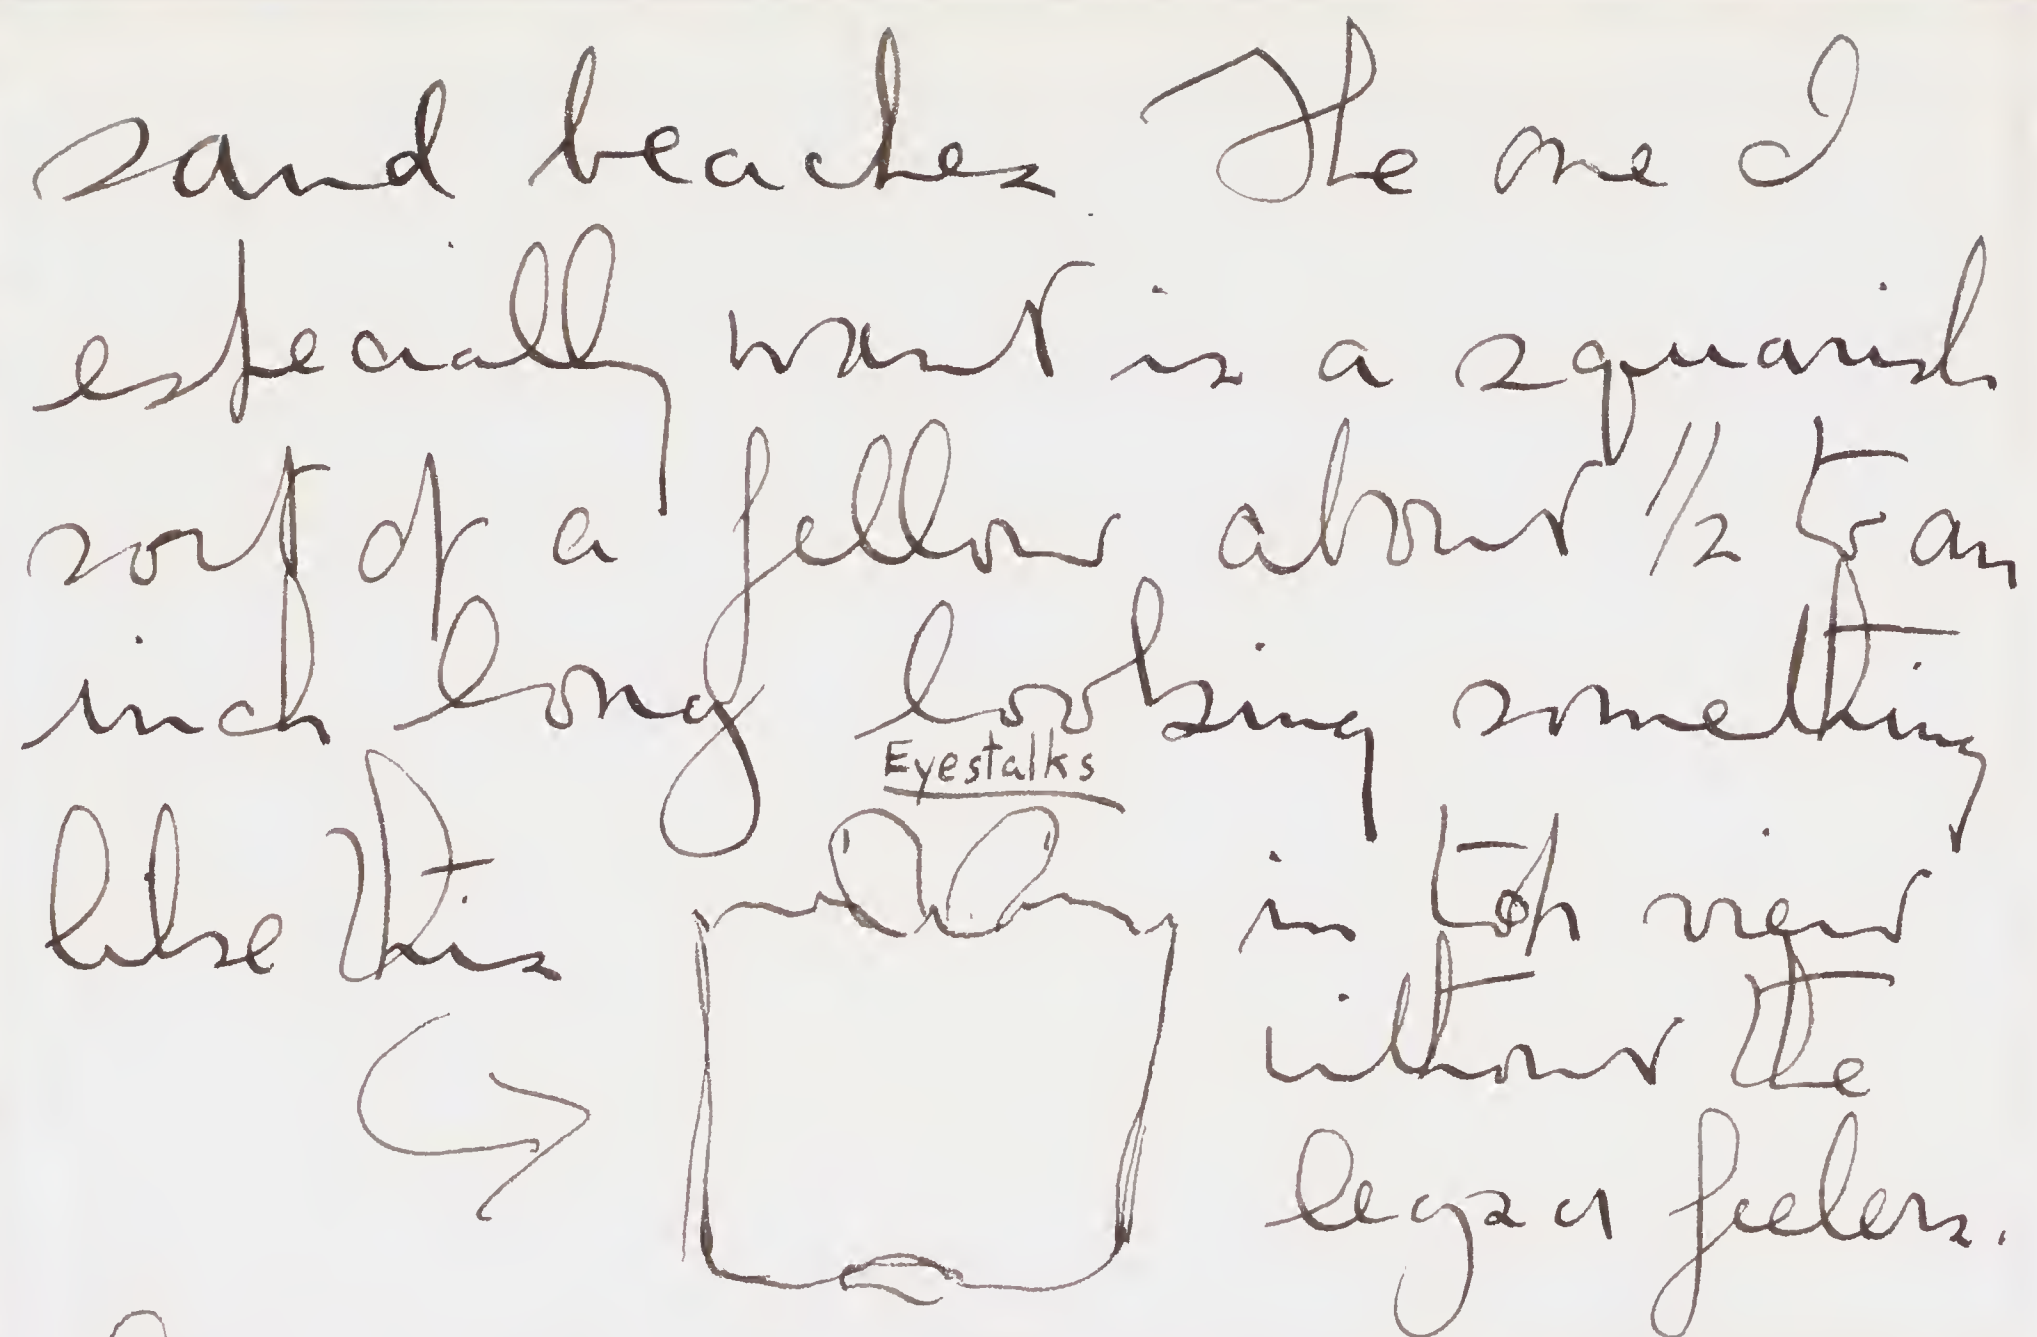 sand beaches. The one I
especially want is a squarish
sort of a fellow about 1/2 to an
inch long looking something
Eyestalks
like this
in top view
without the
legs or feelers.